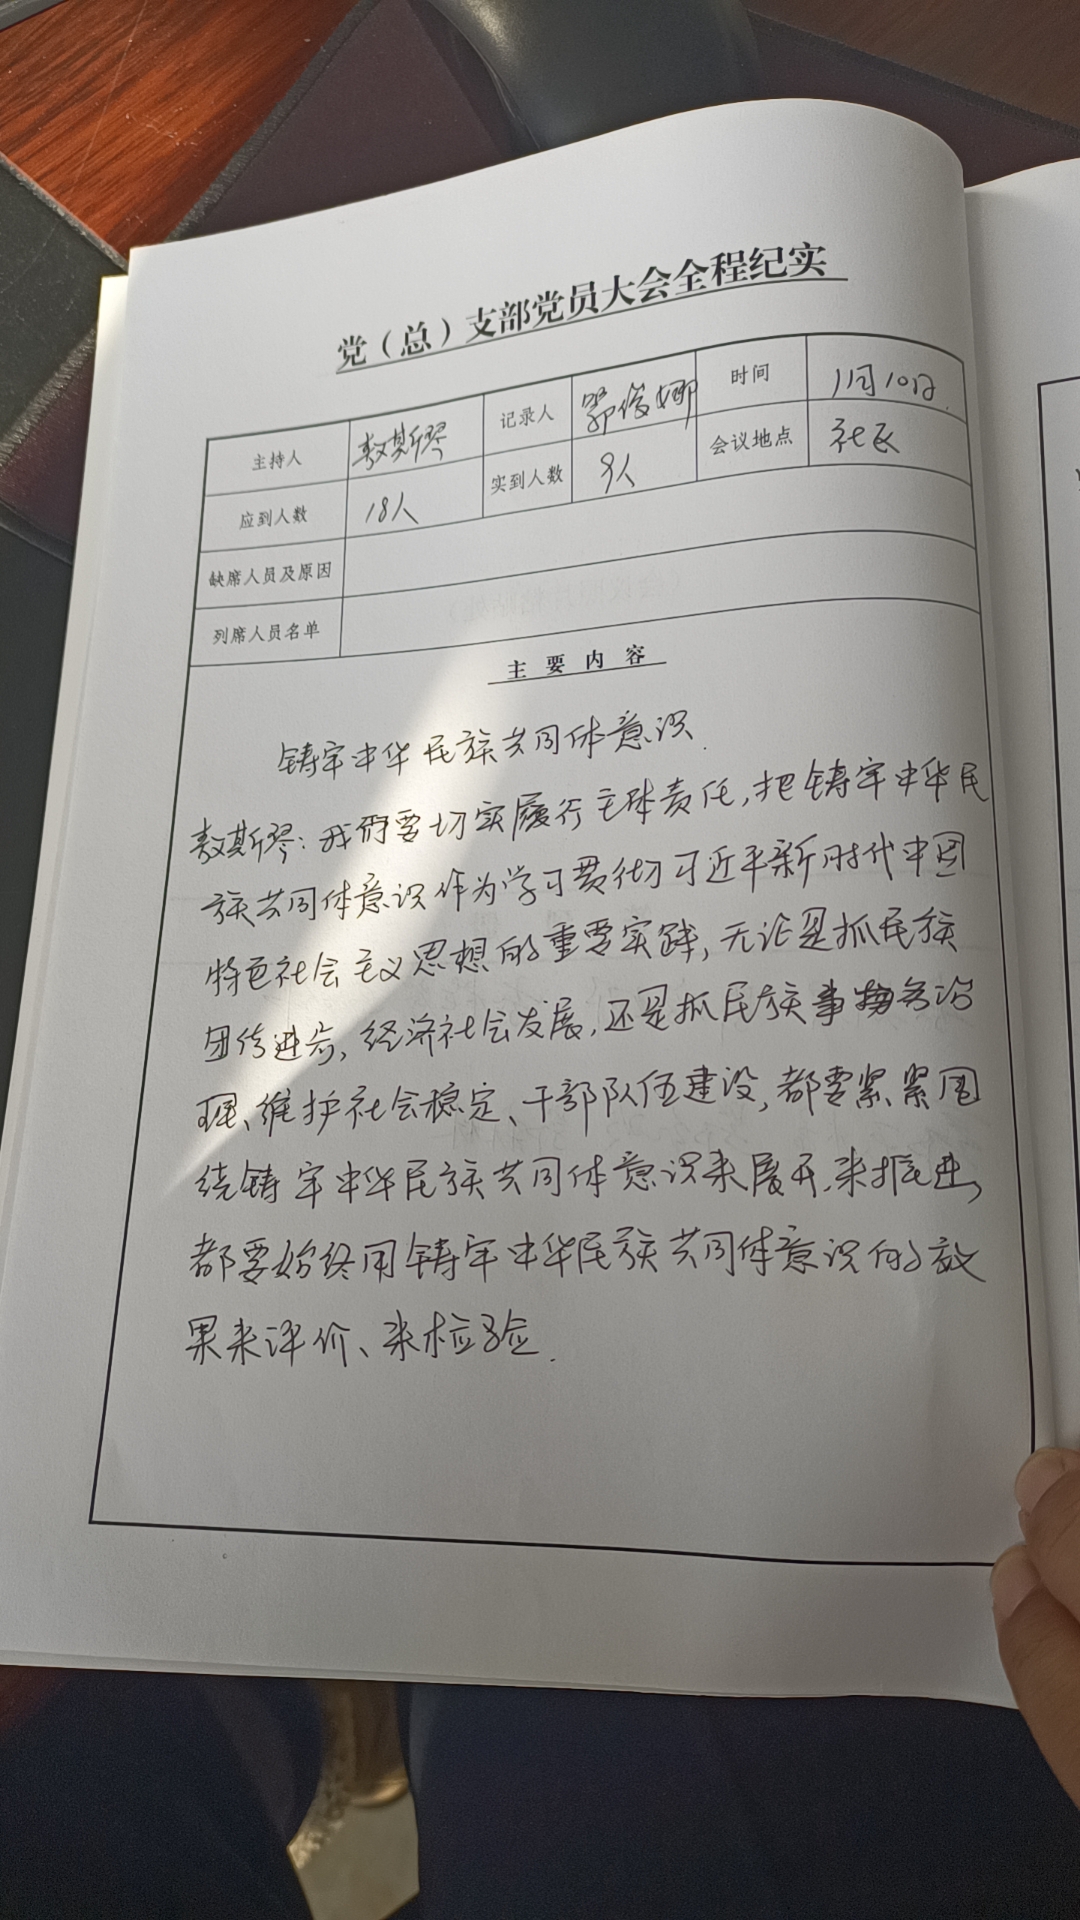 党（总）支部党员大会全程纪实
主持人 敖斯琴 记录人 郭俊娜 时间 11月10日
应到人数 18人 实到人数 9人 会议地点 社区
缺席人员及原因
列席人员名单
主要内容
铸牢中华民族共同体意识.
敖斯琴：我们要切实履行主体责任,把铸牢中华民
族共同体意识作为学习贯彻习近平新时代中国
特色社会主义思想的重要实践,无论是抓民族
团结进步,经济社会发展,还是抓民族事务治
理、维护社会稳定、干部队伍建设,都要紧紧围
绕铸牢中华民族共同体意识来展开、来推进,
都要始终用铸牢中华民族共同体意识的效
果来评价、来检验.